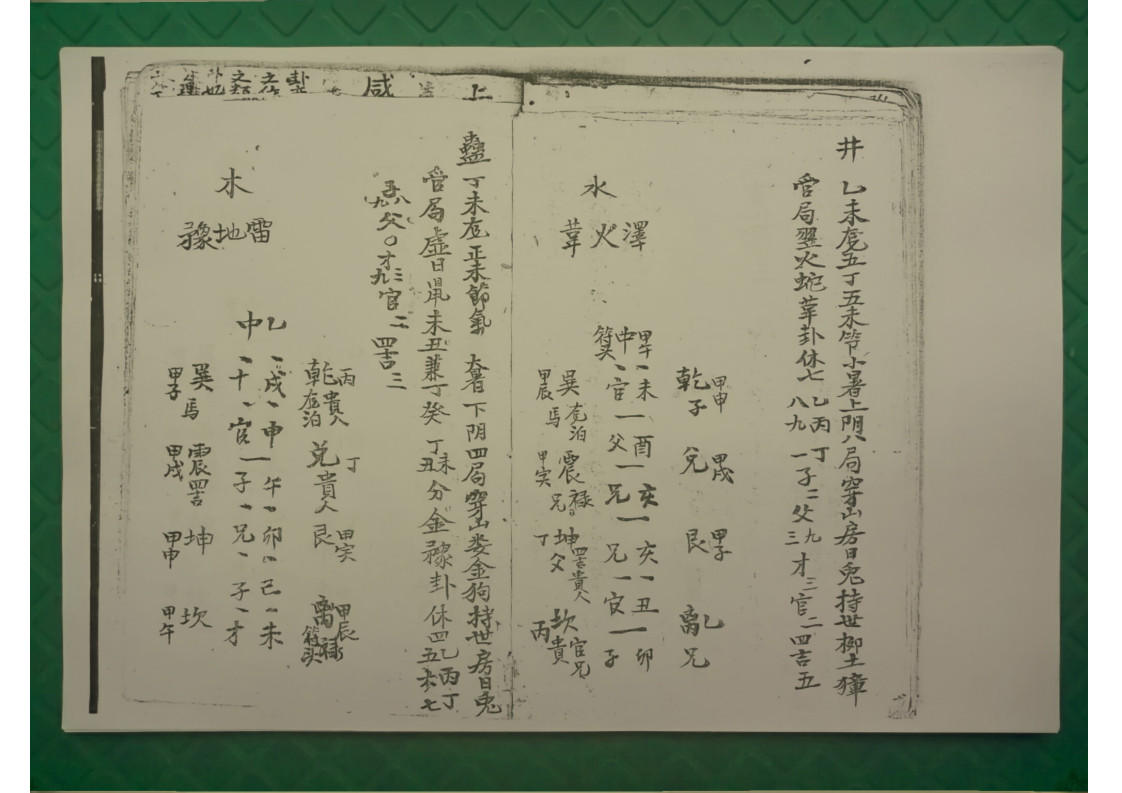 井
乙未허五丁五未节小暑上阴八局穿山房日兔持世柳土獐
管局翌火蛇革卦休七乙丙丁
八九一子二父九三才三官二四吉五
水
澤火革
中
甲午
符头
一未一酉一亥一亥一丑一卯
一官一父一兄一兄一官一子
乾子 甲申
兌 甲戌
艮 甲子
離兄 乙
巽 甲辰 馬 泊
震禄 甲寅 兄
坤父 丁 四吉貴人
坎官兄 丙貴
蠱
丁未 正未節氣 大暑下阴四局穿山娄金狗持世房日兔
管局虛日鼠未丑兼丁癸丁未丑分金豫卦休四乙五丙六丁七
八父九〇才三九官二四吉三
木
雷地豫
乙中
戌申午卯巳未
才官子兄子才
乾 丙貴人 泊
兌貴人 丁
艮 甲寅
離禄 甲辰 符头
巽 甲子 馬
震四吉 甲戌
坤 甲申
坎 甲午
上 咸